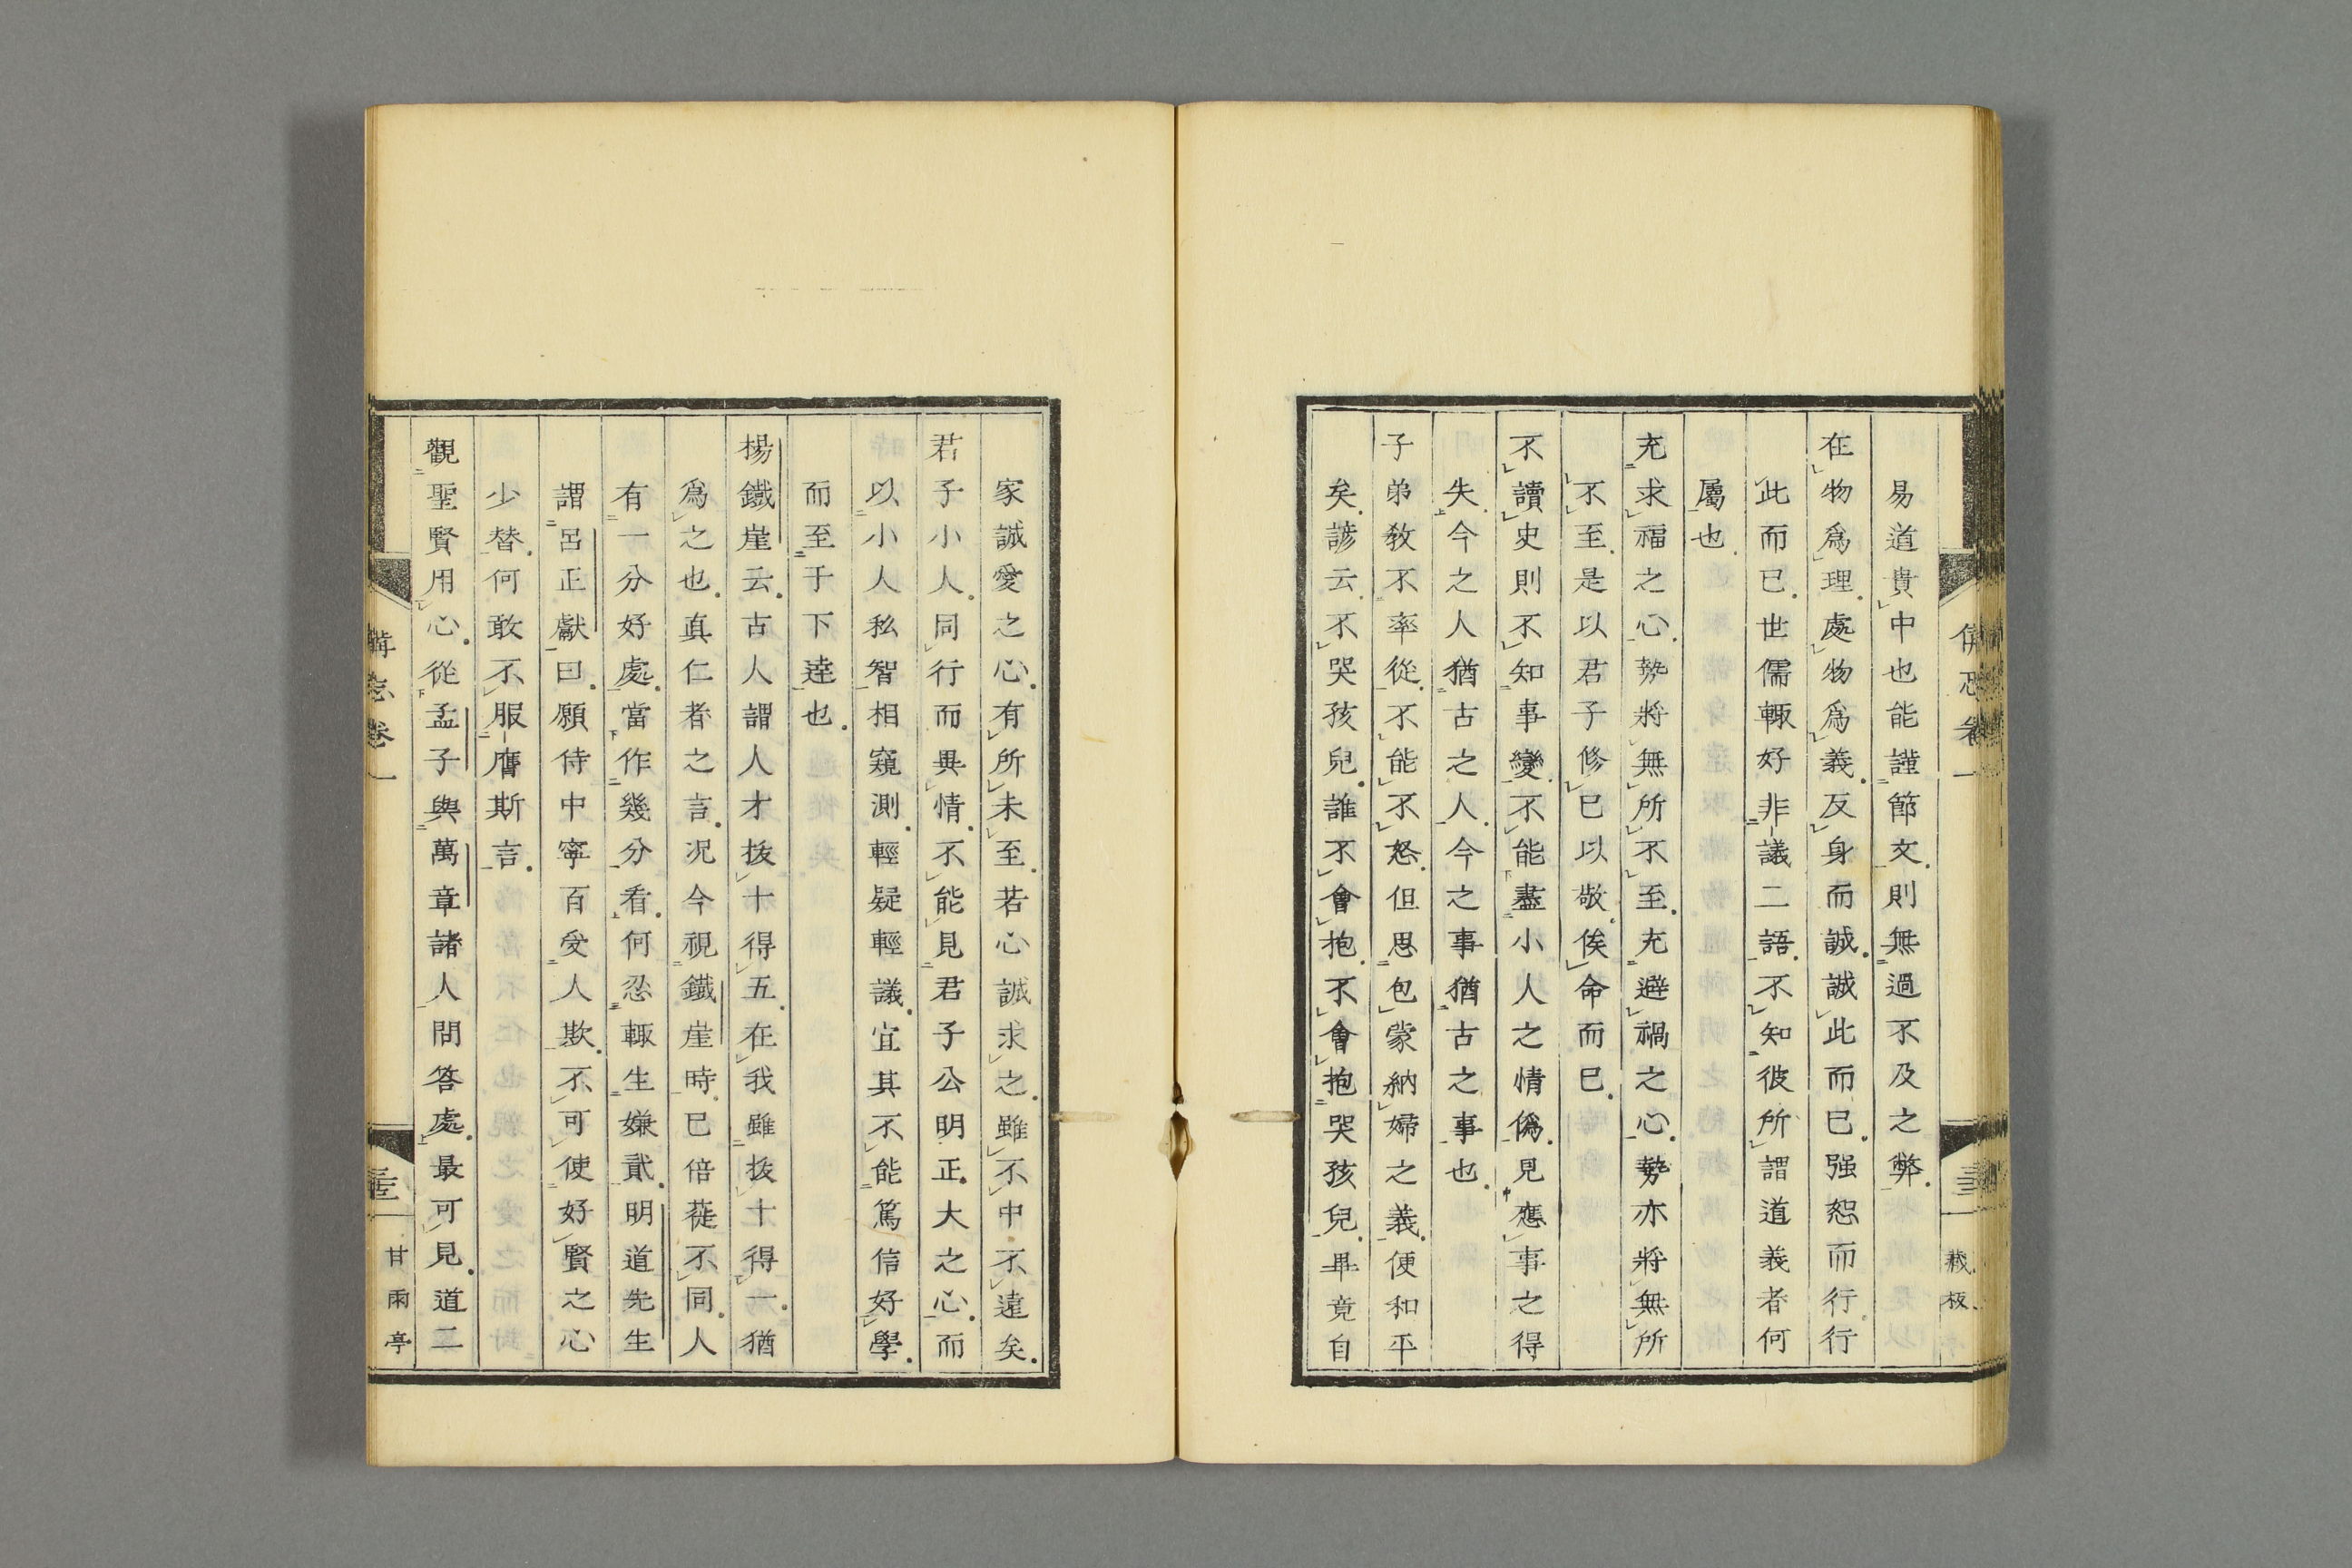 易道貴中也能謹節文則無過不及之弊
在物爲理處物爲義反身而誠誠此而已强恕而行行
此而已世儒輙好非議二語不知彼所謂道義者何
屬也
充求福之心勢將無所不至充避禍之心勢亦將無所
不至是以君子修已以敬俟命而已
不讀史則不知事變不能盡小人之情僞見應事之得
失今之人猶古之人今之事猶古之事也
子弟教不率從不能不怒但思包蒙納婦之義便和平
矣諺云不哭孩兒誰不會抱不會抱哭孩兒畢竟自
藏板
家誠愛之心有所未至若心誠求之雖不中不遠矣
君子小人同行而異情不能見君子公明正大之心而
以小人私智相窺測輕疑輕議宜其不能篤信好學
而至于下達也
楊鐵崖云古人謂人才拔十得五在我雖拔十得一猶
爲之也真仁者之言况今視鐵崖時已倍蓰不同人
有一分好處當作幾分看何忍輙生嫌貳明道先生
謂呂正獻曰願侍中寧百受人欺不可使好賢之心
少替何敢不服膺斯言
觀聖賢用心從孟子與萬章諸人問答處最可見道二
卷一
甘雨亭